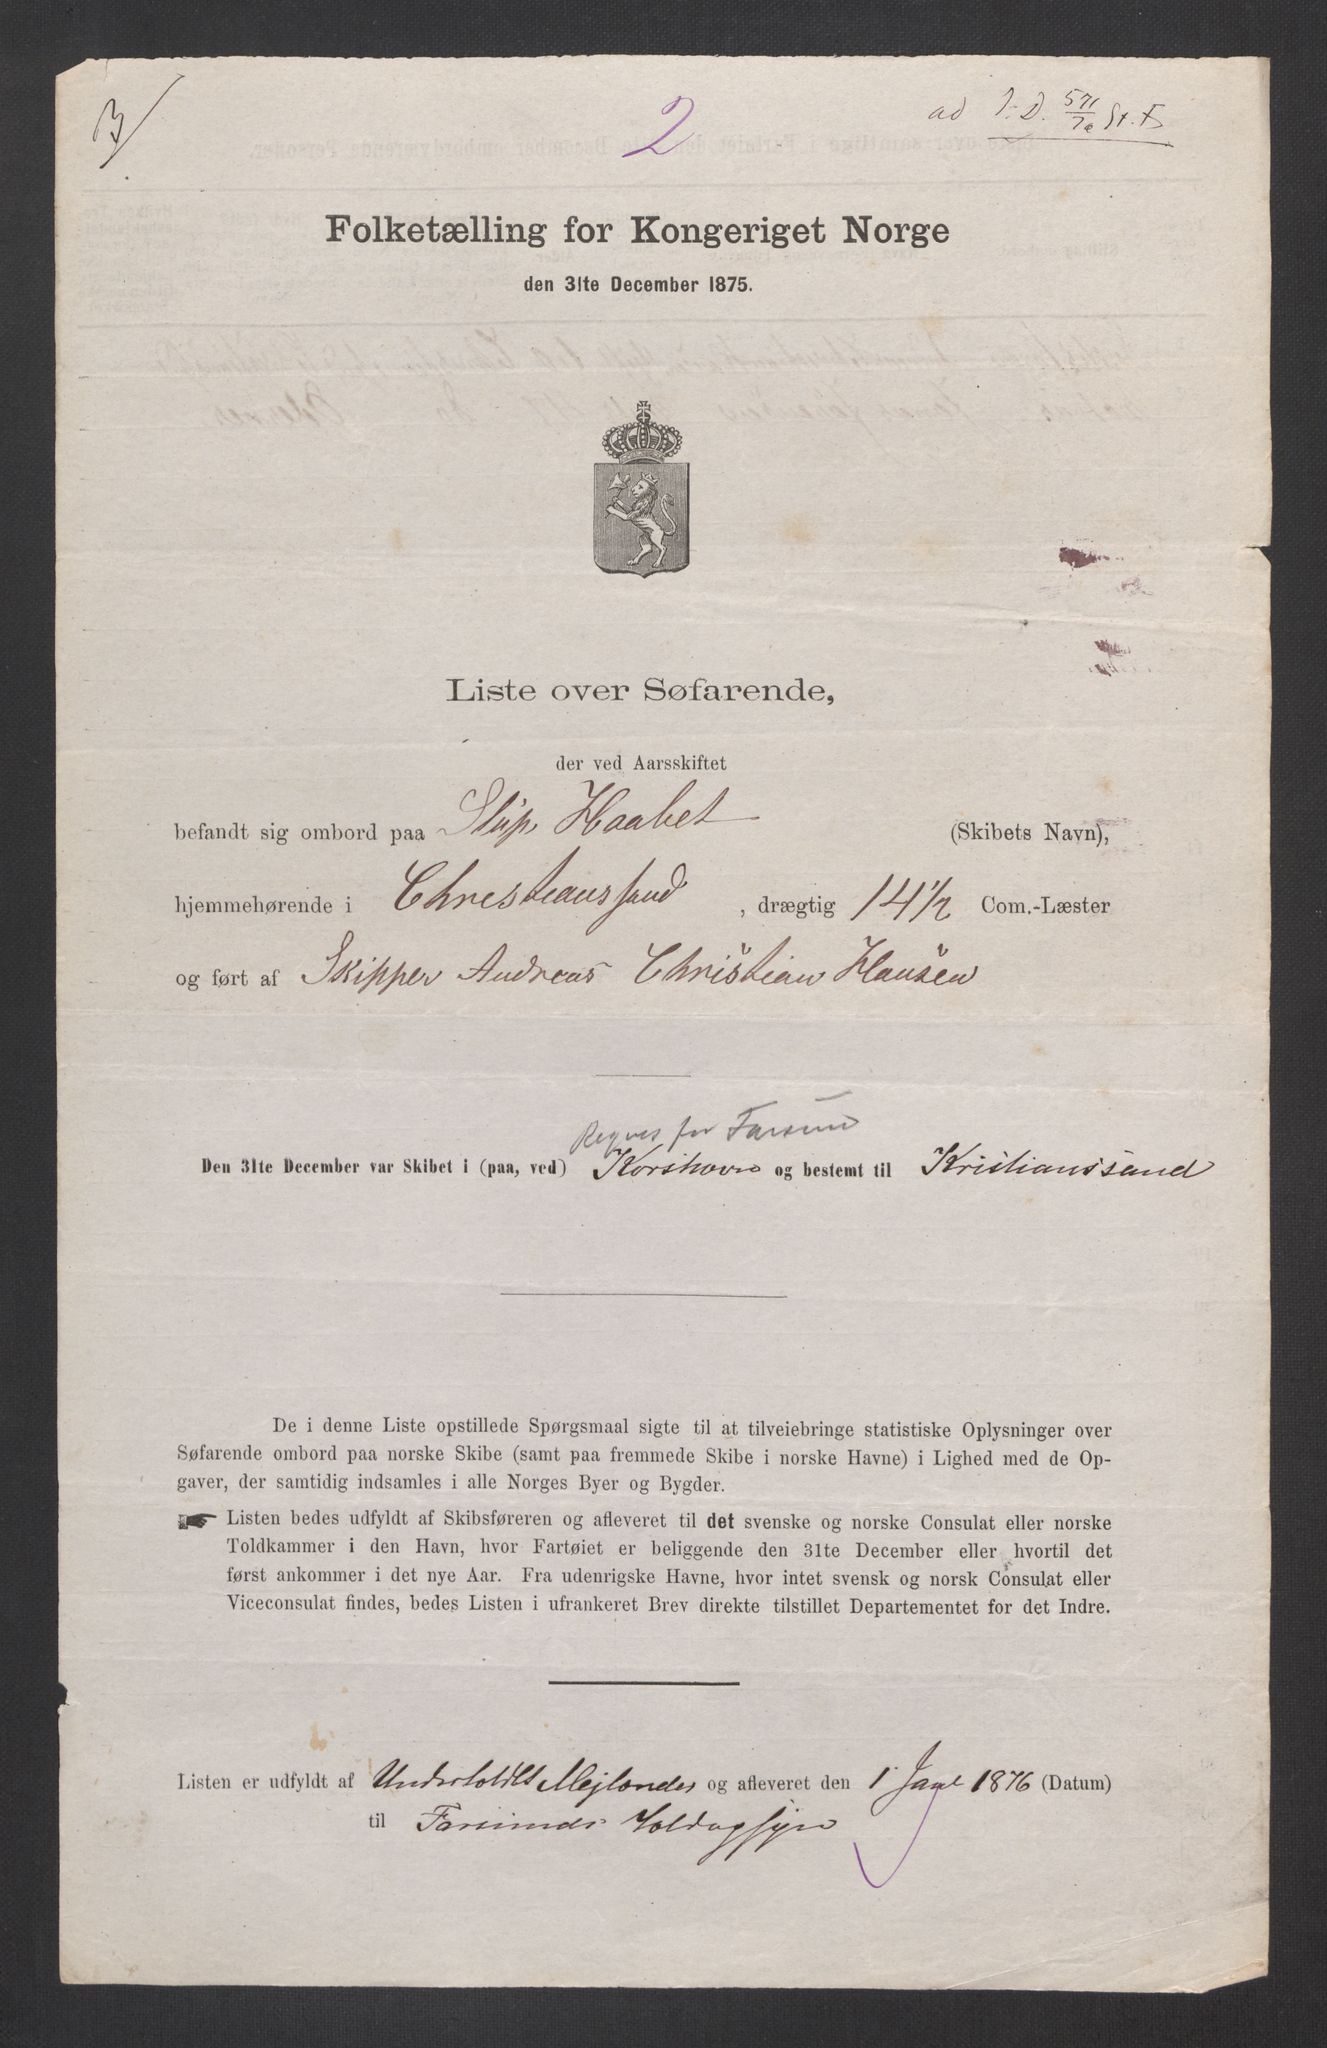 3/
2
ad J.D. 571/76 St. B
Folketælling for Kongeriget Norge
den 31te December 1875.
Liste over Søfarende,
der ved Aarsskiftet
befandt sig ombord paa Slup Haabet (Skibets Navn),
hjemmehørende i Christianssand, drægtig 14 1/2 Com.-Læster
og ført af Skipper Andreas Christian Hansen
Regnes for Farsund
Den 31te December var Skibet i (paa, ved) Korshavn og bestemt til Kristianssand
De i denne Liste opstillede Spørgsmaal sigte til at tilveiebringe statistiske Oplysninger over
Søfarende ombord paa norske Skibe (samt paa fremmede Skibe i norske Havne) i Lighed med de Op-
gaver, der samtidig indsamles i alle Norges Byer og Bygder.
☛ Listen bedes udfyldt af Skibsføreren og afleveret til det svenske og norske Consulat eller norske
Toldkammer i den Havn, hvor Fartøiet er beliggende den 31te December eller hvortil det
først ankommer i det nye Aar. Fra udenrigske Havne, hvor intet svensk og norsk Consulat eller
Viceconsulat findes, bedes Listen i ufrankeret Brev direkte tilstillet Departementet for det Indre.
Listen er udfyldt af Undertoldbt Mejlænder og afleveret den 1 Janl 1876 (Datum)
til Farsunds Toldopsyn